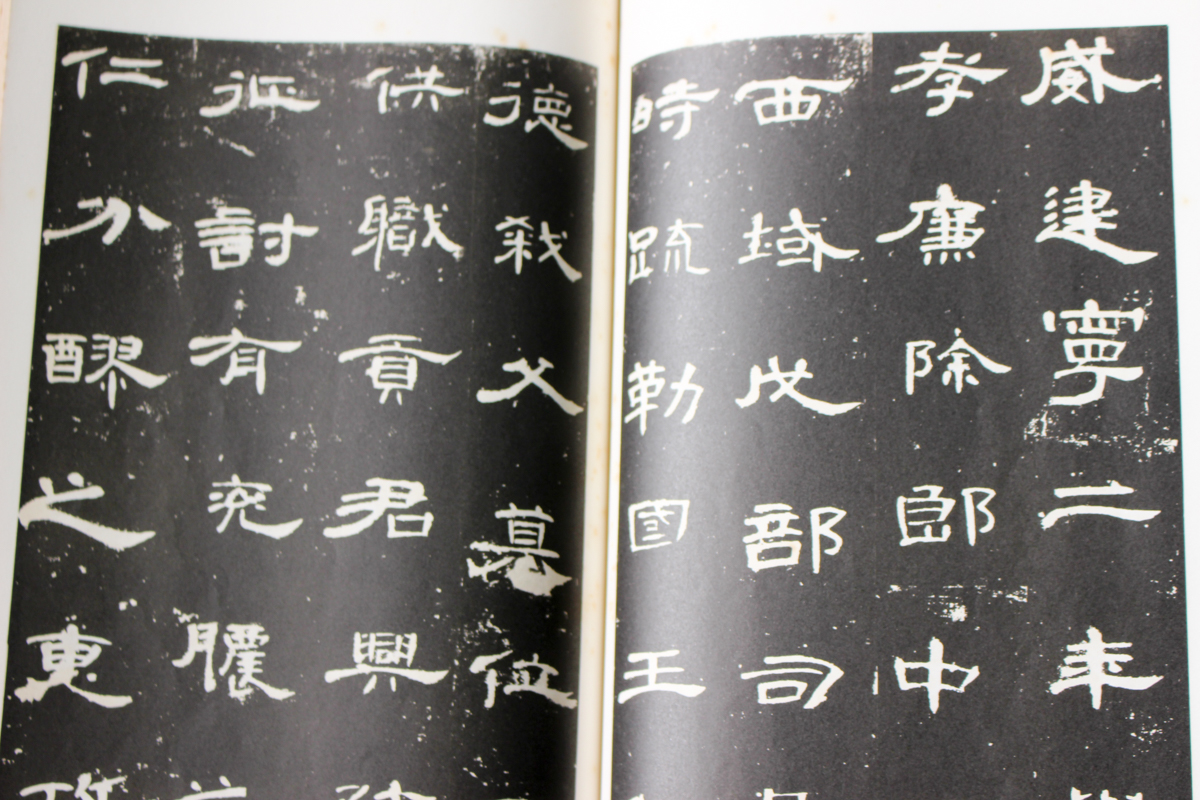 威建寧二年
孝廉除郎中
西域戊部司
時疏勒國王
德弒父篡位
供職貢君興
征討有兖膿
仁分醪之惠